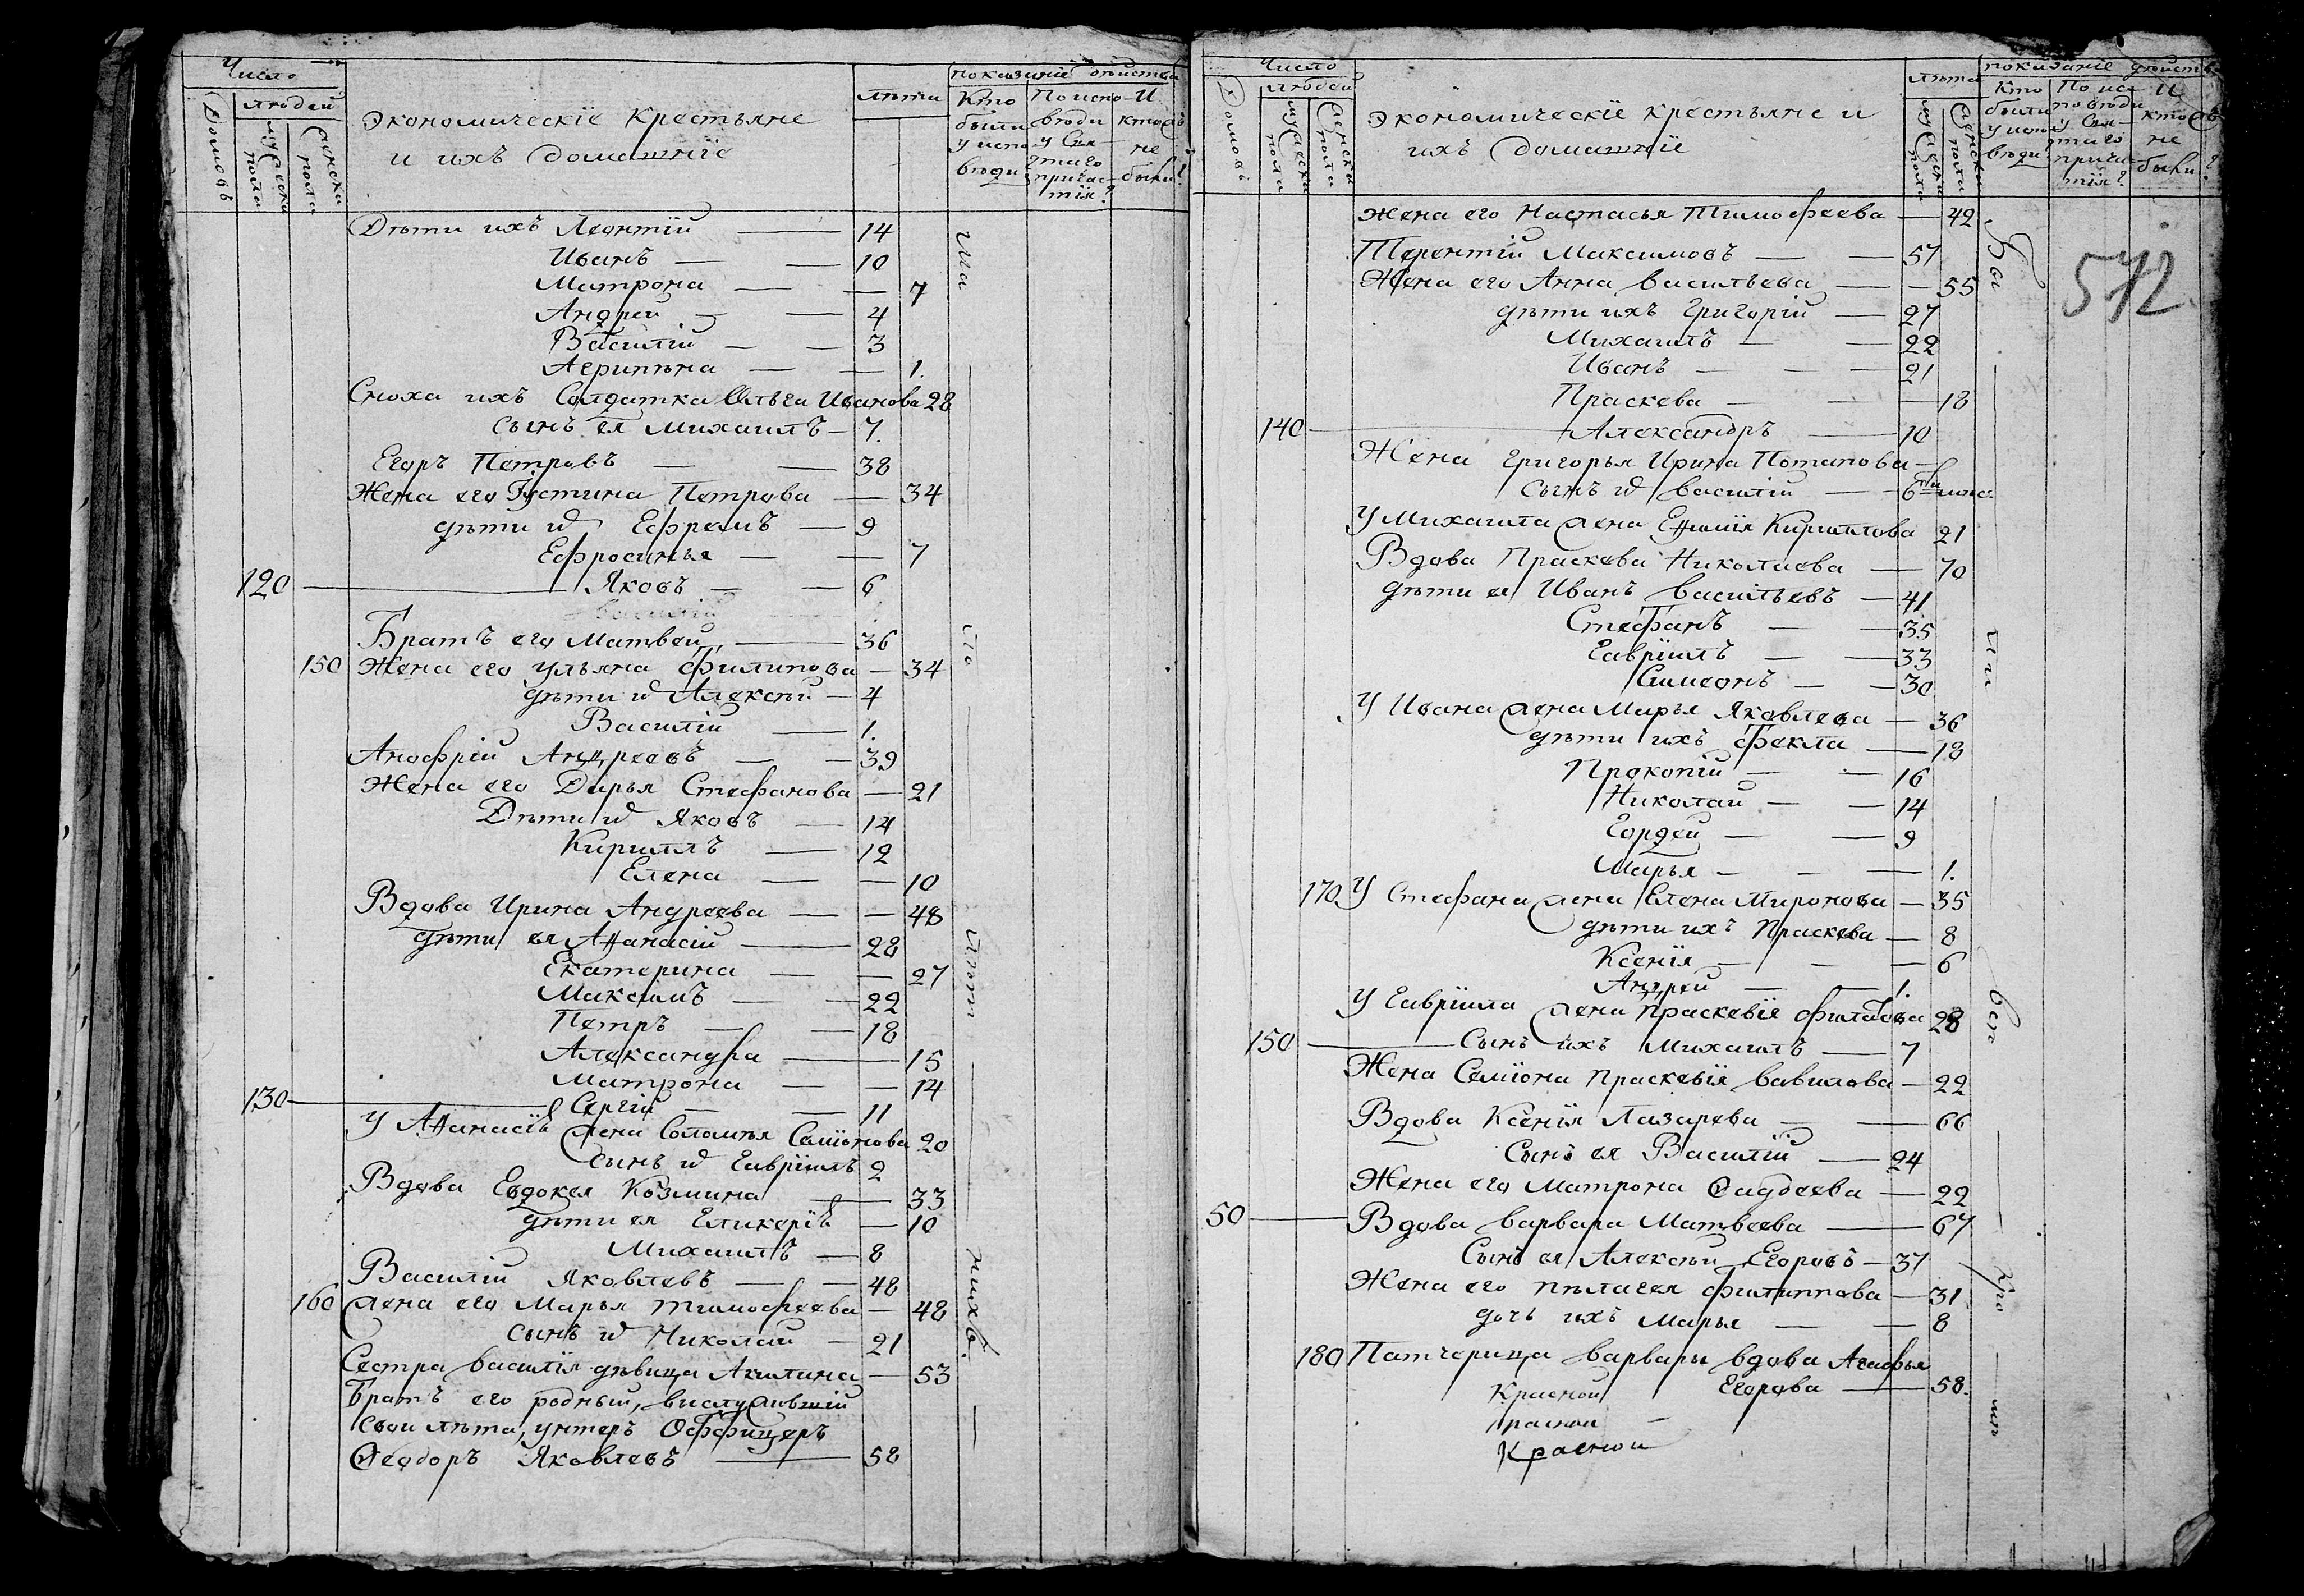 Число
людей
Домовъ
мужеска пола
женска пола
Экономическіе Крестьяне
и ихъ Домашніе
лѣта
показаніе дѣйства
Кто были у исповѣди
По исповѣди у Святаго причастія?
И кто съ не были?
Дѣти ихъ Леонтій — 14
Иванъ — — 10
Матрона — — 7
Андрей — — 4
Василій — — 3
Агрипѣна — — 1.
Сноха ихъ Солдатка Ольга Иванова 28
Сынъ ея Михаилъ — 7.
Егоръ Петровъ — — 38
Жена его Іустина Петрова — 34
дѣти и Ефремъ — 9
Ефросинья — — 7
120 — Яковъ — — 6
Василій
Братъ его Матвей — 36
150 Жена его Ульяна Филипова — 34
дѣти и Алексѣй — 4
Василій — 1.
Анофрій Андреевъ — — 39
Жена его Дарья Стефанова — 21
Дѣти и Яковъ — 14
Кириллъ — 12
Елена — — 10
Вдова Ирина Андреева — — 48
дѣти ея Аѳанасій — 28
Екатерина — — 27
Максимъ — — 22
Петръ — — 18
Александра — 15
Матрона — — 14
130 — Сергій — — 11
У Аѳанасія жена Соломѣя Семіонова 20
Сынъ и Гавріилъ 2
Вдова Евдокея Козмина — 33
дѣти ея Гликерія — 10
Михаилъ — 8
Василій Яковлевъ — — 48
160 жена его Марья Тимофеева — 48
Сынъ и Николай — 21
Сестра Василія дѣвица Акилина — 53
Братъ его родный, выслужившій
свои лѣта, унтеръ Оффицеръ
Ѳеодоръ Яковлевъ — 58
Число
людей
Домовъ
мужеска пола
женска пола
Экономическіе крестьяне и
ихъ Домашніе
лѣта
мужеска пола
женска пола
показаніе дѣйства
Кто были у исповѣди
По исповѣди у Святаго причастія?
И кто съ не были?
572
Жена его Настасья Тимофеева — 42
Терентій Максимовъ — — 57
Жена его Анна Васильева — — 55
дѣти ихъ Григорій — 27
Михаилъ — — 22
Иванъ — — — 21
Праскева — — — 18
140 — Александръ — 10
Жена Григорья Ирина Потапова —
Сынъ и Василій — — 6
У Михаила жена Еѵѳимія Кирилова 21
Вдова Праскева Николаева — 70
дѣти ея Иванъ Васильевъ — 41
Стефанъ — — 35
Гавріилъ — — 33
Симеонъ — — 30
У Ивана жена Марья Яковлева — 36
дѣти ихъ Фекла — 18
Прокопій — — 16
Николай — — 14
Гордей — — 9
Марья — — — 1.
170 У Стефана жена Елена Миронова — 35
дѣти ихъ Праскева — 8
Ксенія — — — 6
Андрей — — 1.
У Гавріила жена Праскевія 28
150 — Сынъ ихъ Михаилъ — 7
Жена Семіона Праскевія Вавилова — 22
Вдова Ксенія Лазарева — — 66
Сынъ ея Василій — 24
Жена его Матрона Фаддеева — 22
50 — Вдова Варвара Матвеева — 67
Сынъ ея Алексѣй Егоровъ — 37
Жена его Пелагея Филиппова — 31
дочь ихъ Марья — — 8
180 Патчерица Варвары вдова Агафья
Егорова — 58.
Красной
Красной